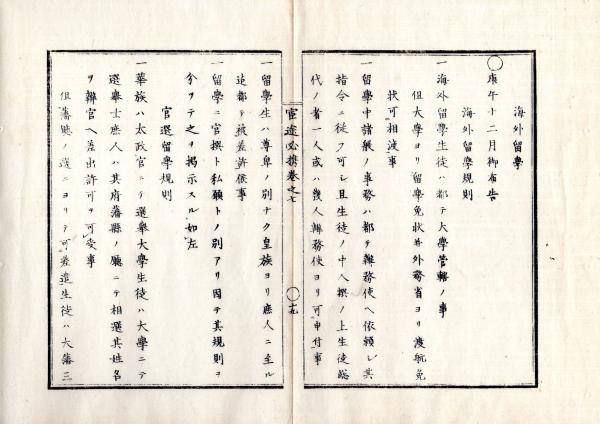 海外留學
〇庚午十二月御布告
海外留學規則
一海外留學生徒ハ都テ大學管轄ノ事
但大學ヨリ留學免狀并外務省ヨリ渡航免
狀可相渡事
一留學中諸般ノ事務ハ都テ辨務使ヘ依賴シ其
指令ニ從フ可シ且生徒ノ中人撰ノ上生徒総
代ノ者一人或ハ幾人辨務使ヨリ可申付事
宦途必携巻之七
〇十九
一留學生ハ尊卑ノ別ナク皇族ヨリ庶人ニ至ル
迄都テ被差許候事
一留學ニ官撰ト私願トノ別アリ因テ其規則ヲ
分リテ之ヲ掲示スル如左
官選留學規則
一華族ハ太政官ニテ選舉大學生徒ハ大學ニテ
選舉士庶人ハ其府藩縣ノ廳ニテ相選其姓名
ヲ辨官ヘ差出許可ヲ可受事
但藩廳ノ選ニヨリテ可差遣生徒ハ大藩三